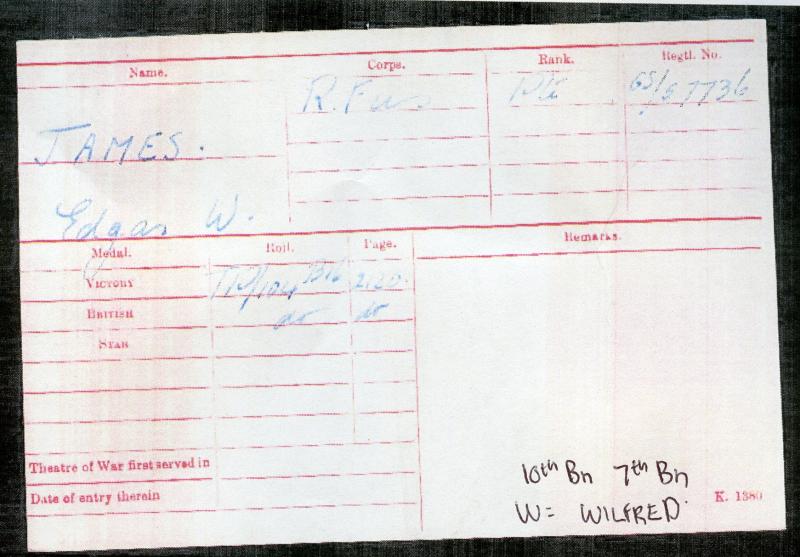 Name. Corps. Rank. Regtl. No.
R. Fus Pte GS/57736
JAMES.
Edgar W.
Medal. Roll. Page. Remarks.
VICTORY TP/104 B16 2120.
BRITISH do do
STAR
Theatre of War first served in
Date of entry therein
10th Bn 7th Bn
W = WILFRED.
K. 1380